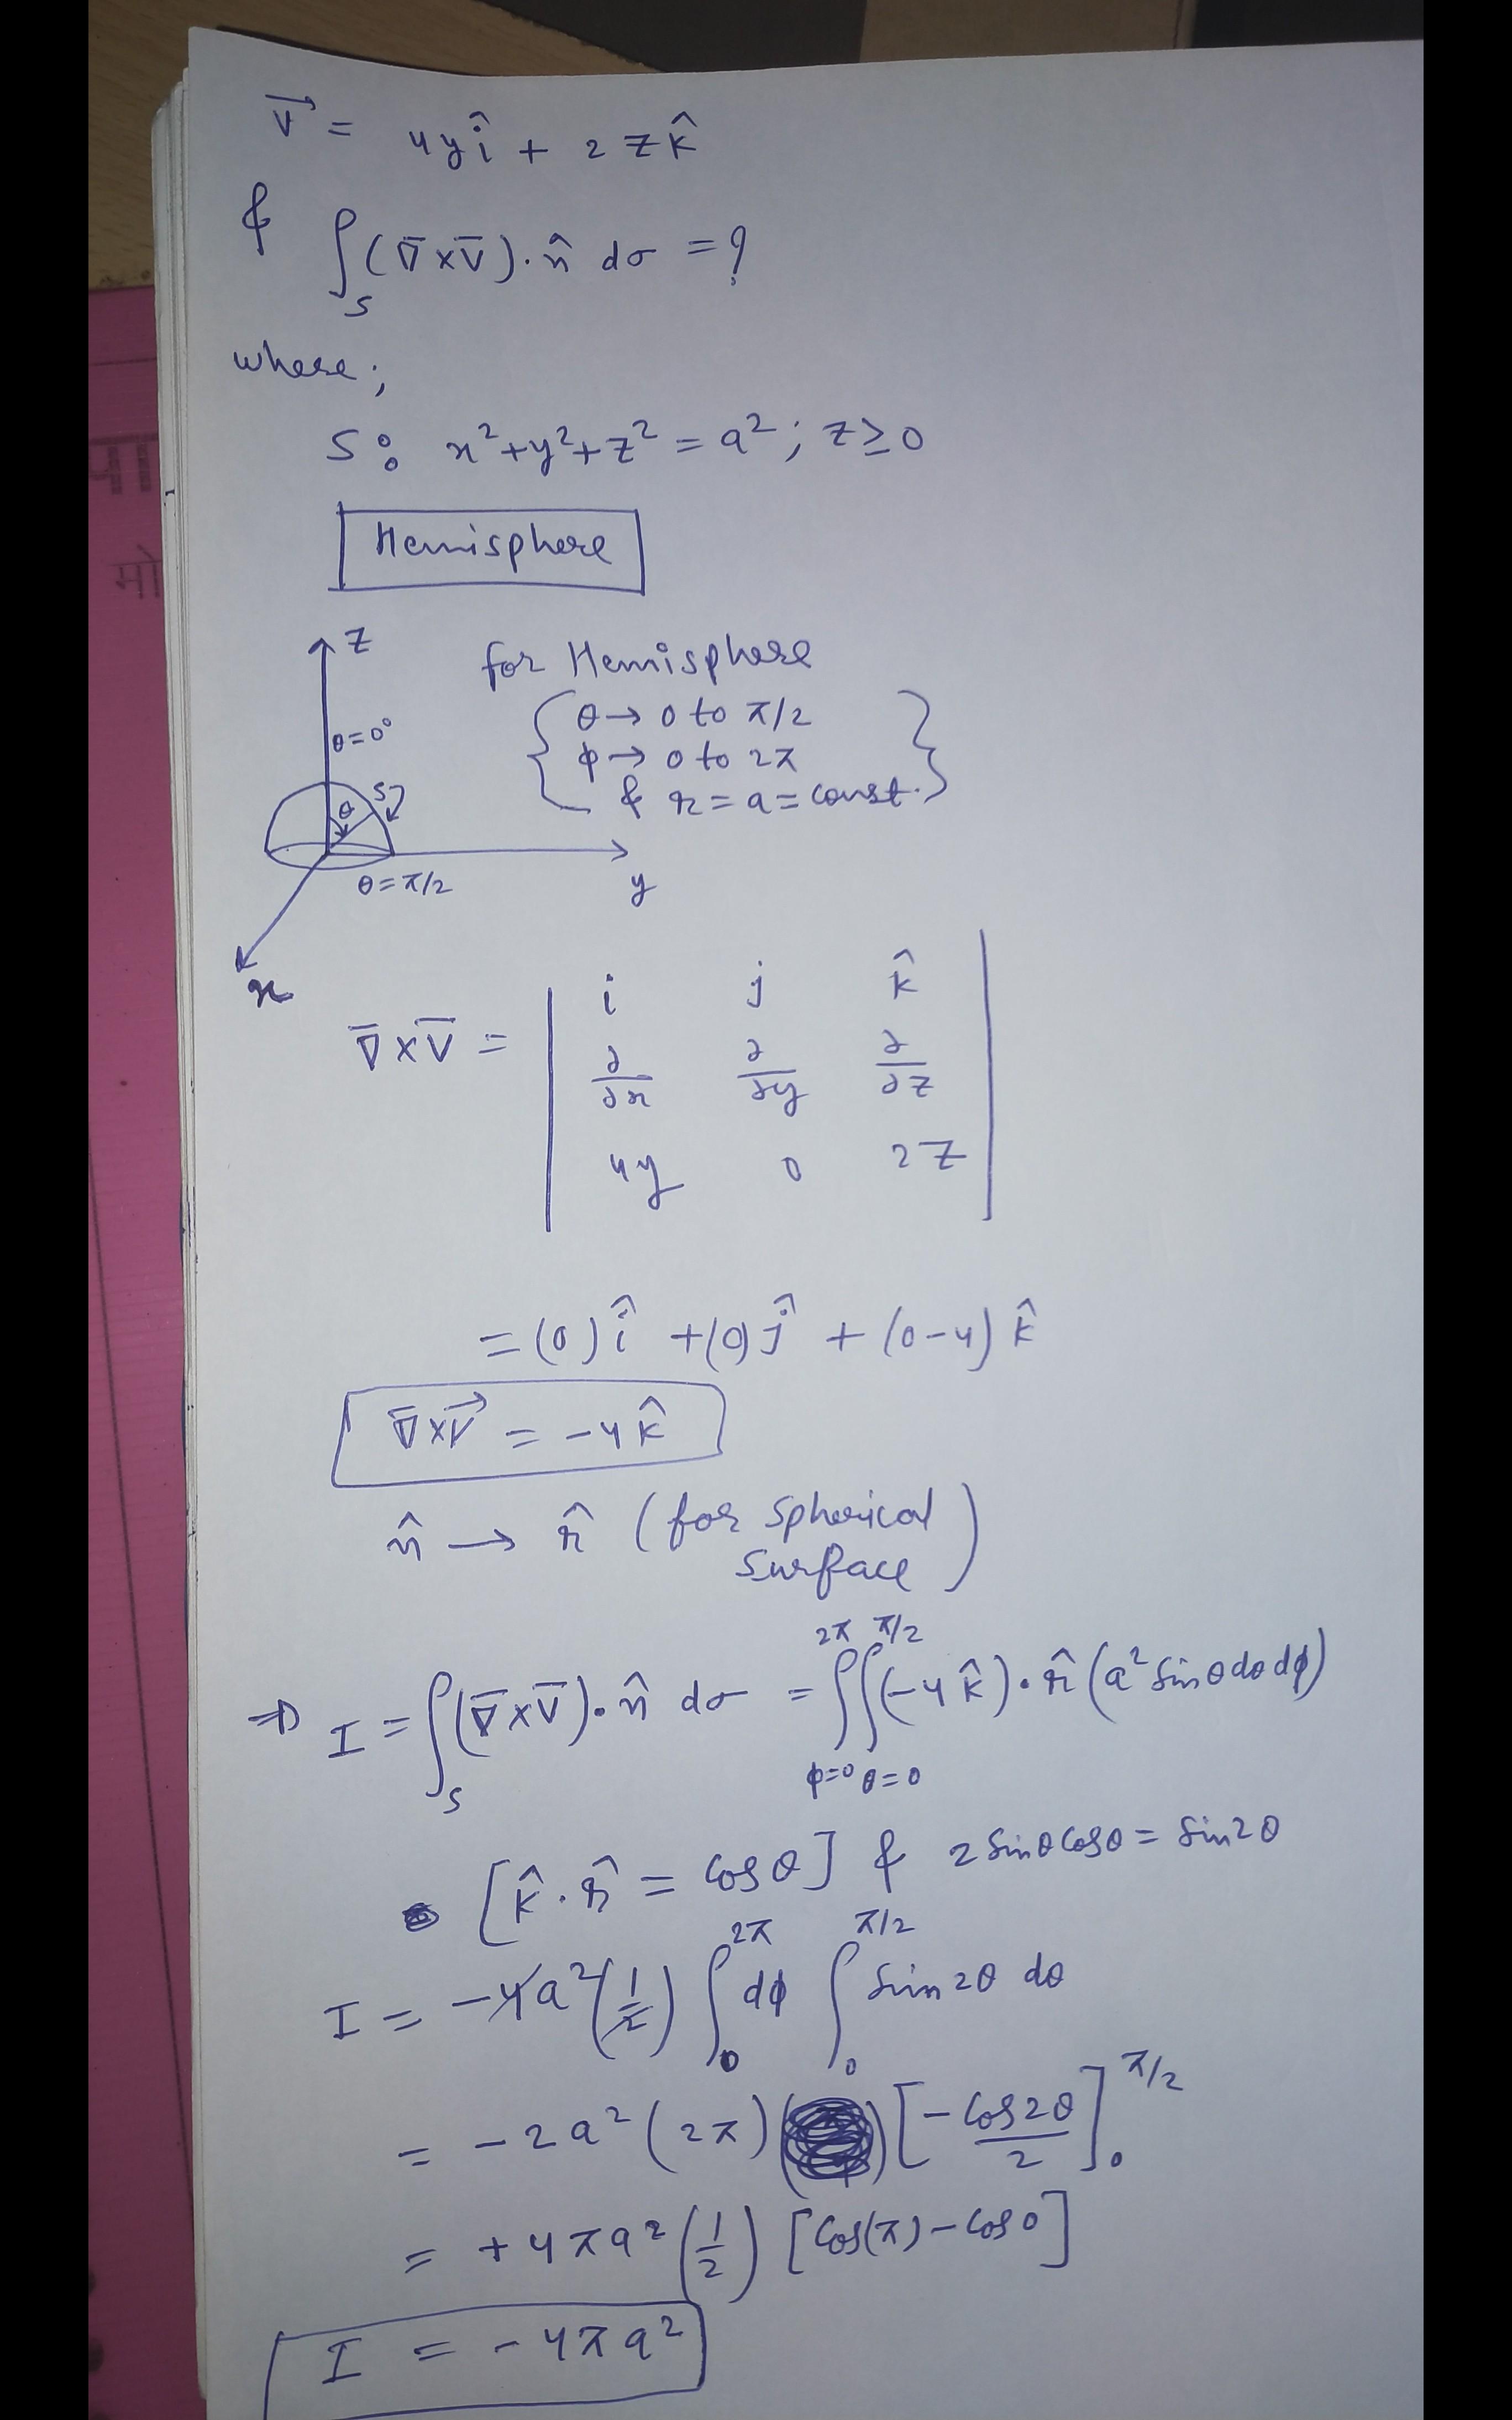 V⃗ = 4yî + 2zk̂
& ∫_S (∇̄×V̄)·n̂ dσ = ?
where;
S: x²+y²+z² = a²; z≥0
Hemisphere
z
for Hemisphere
θ→ 0 to π/2
θ=0°
ϕ→ 0 to 2π
& r = a = const.
θ
S
y
θ=π/2
x
∇̄×V̄ = | i j k̂
∂/∂x ∂/∂y ∂/∂z
4y 0 2z |
= (0)î + (0)ĵ + (0-4)k̂
∇̄×V⃗ = -4k̂
n̂ → r̂ (for spherical
surface)
⇒ I = ∫_S (∇̄×V̄)·n̂ dσ = ∫_{ϕ=0}^{2π} ∫_{θ=0}^{π/2} (-4k̂)·r̂ (a² sinθ dθ dϕ)
[k̂·r̂ = cosθ] & 2 sinθ cosθ = sin2θ
I = -4a² (1/2) ∫_0^{2π} dϕ ∫_0^{π/2} sin2θ dθ
= -2a² (2π) [-cos2θ/2]_0^{π/2}
= +4πa² (1/2) [cos(π) - cos0]
I = -4πa²